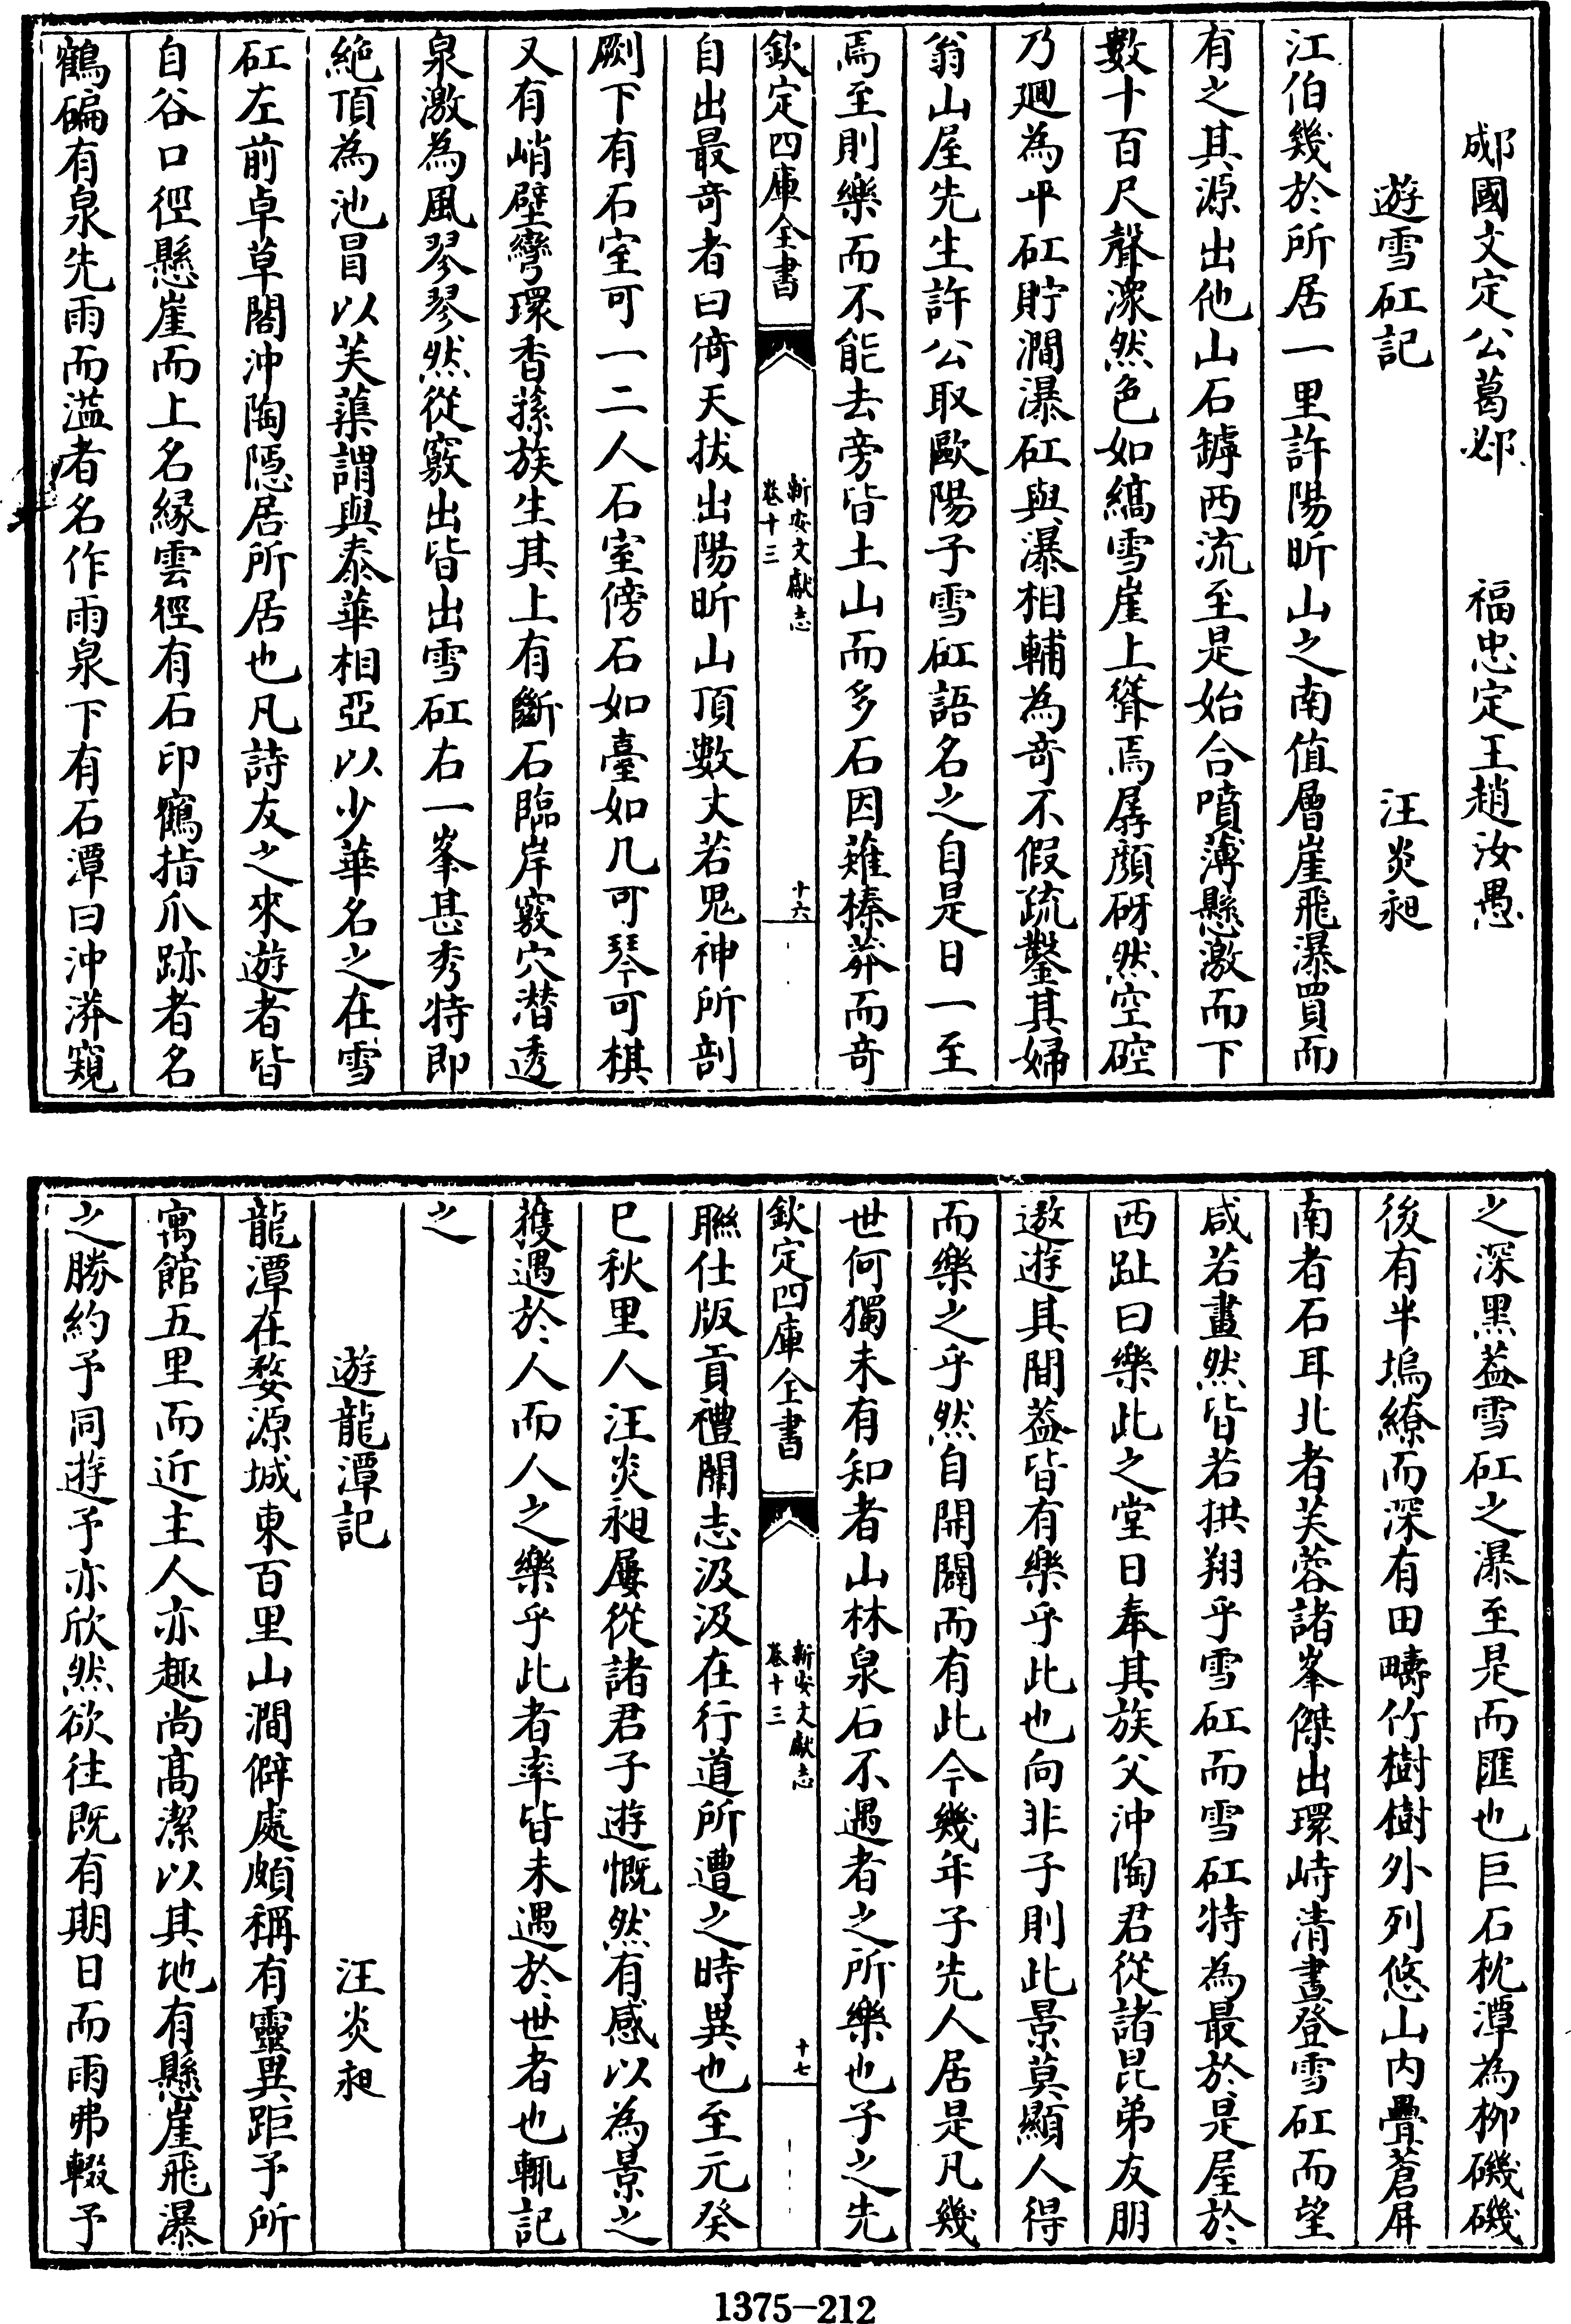 郕國文定公葛邲　福忠定王趙汝愚
遊雪矼記　汪炎昶
江伯幾於所居一里許陽昕山之南值層崖飛瀑貫而
有之其源出他山石罅西流至是始合噴薄懸激而下
數十百尺聲潀然色如縞雪崖上聳焉孱顔砑然空硿
乃廻為平矼貯澗瀑矼與瀑相輔為竒不假疏鑿其婦
翁山屋先生許公取歐陽子雪矼語名之自是日一至
焉至則樂而不能去旁皆土山而多石因薙榛莽而竒
欽定四庫全書
新安文獻志
卷十三
十六
自出最竒者曰倚天拔出陽昕山頂數丈若鬼神所剖
劂下有石室可一二人石室傍石如臺如几可琴可棋
又有峭壁彎環香蓀族生其上有斷石臨岸竅穴潛透
泉激為風琴琴然從竅出皆出雪矼右一峯甚秀特即
絶頂為池冒以芙蕖謂與泰華相亞以少華名之在雪
矼左前卓草閣沖陶隠居所居也凡詩友之來遊者皆
自谷口徑懸崖而上名縁雲徑有石印鶴指爪跡者名
鶴碥有泉先雨而溢者名作雨泉下有石潭曰沖漭窺
之深黑葢雪矼之瀑至是而匯也巨石枕潭為柳磯磯
後有半塢繚而深有田疇竹樹樹外列悠山内疊蒼屏
南者石耳北者芙蓉諸峯傑出環峙清晝登雪矼而望
咸若畫然皆若拱翔乎雪矼而雪矼特為最於是屋於
西趾曰樂此之堂日奉其族父沖陶君從諸昆弟友朋
遨遊其間葢皆有樂乎此也向非子則此景莫顯人得
而樂之乎然自開闢而有此今幾年子先人居是凡幾
世何獨未有知者山林泉石不遇者之所樂也子之先
欽定四庫全書
新安文獻志
卷十三
十七
聯仕版貢禮闈志汲汲在行道所遭之時異也至元癸
巳秋里人汪炎昶屢從諸君子遊慨然有感以為景之
獲遇於人而人之樂乎此者率皆未遇於世者也輒記
之
遊龍潭記　汪炎昶
龍潭在婺源城東百里山澗僻處頗稱有靈異距予所
寓館五里而近主人亦趣尚髙潔以其地有懸崖飛瀑
之勝約予同遊予亦欣然欲往既有期日而雨弗輟予
1375-212